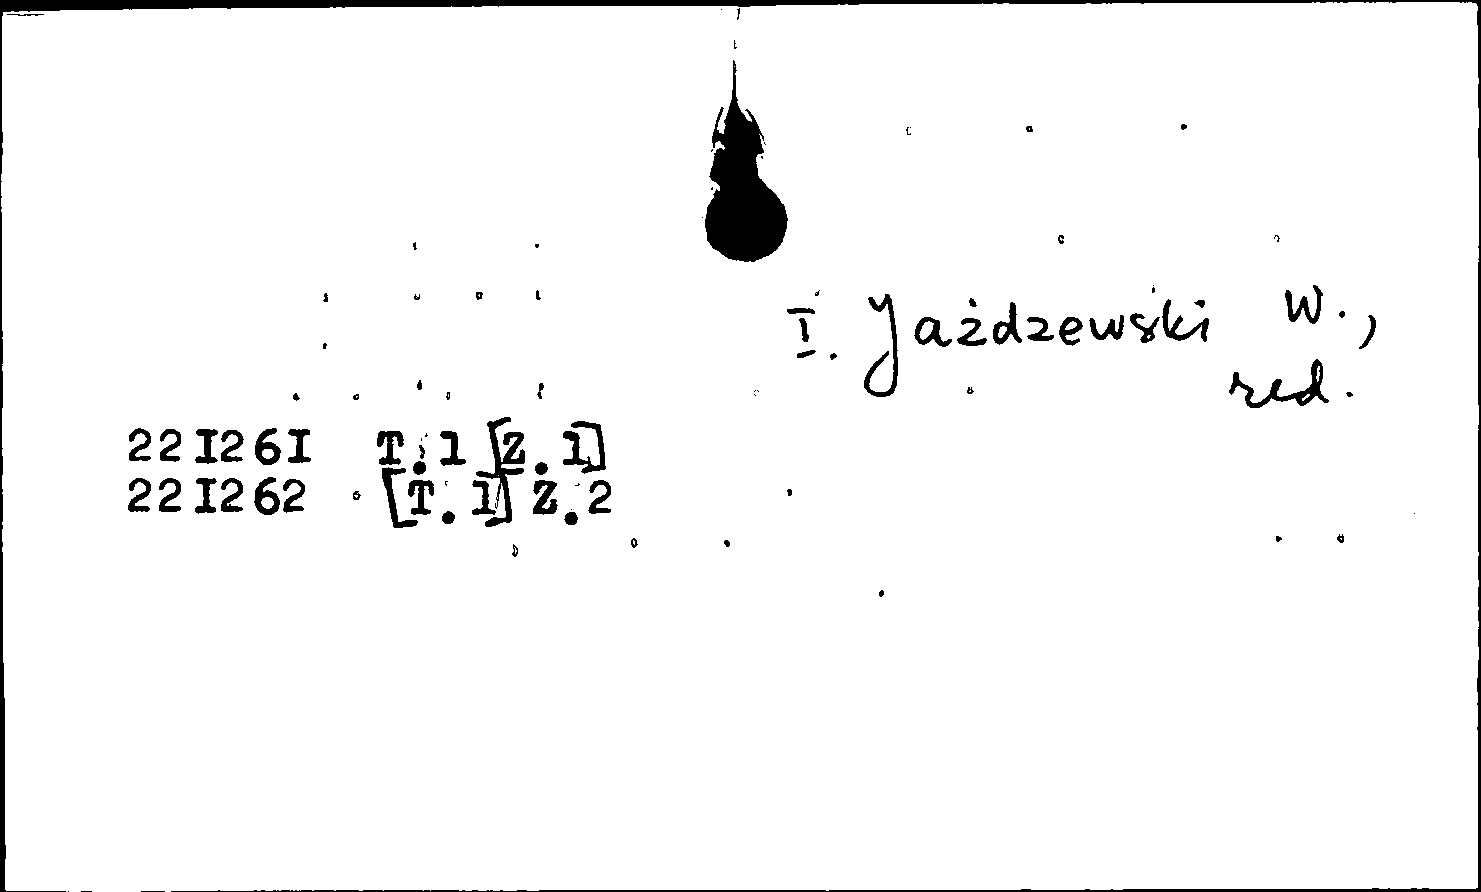 I. Jażdzewski W.,
red.
22I26I T.1 [Z.1]
22I262 [T.1] Z.2